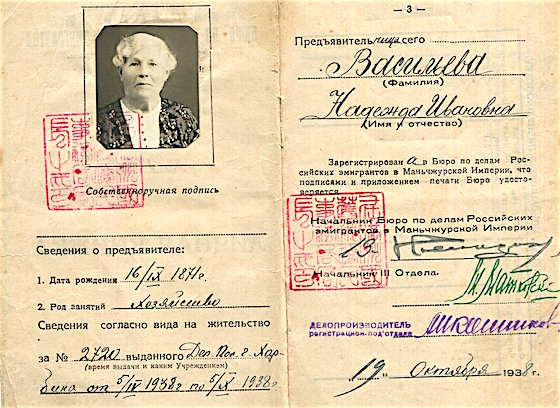 Собственноручная подпись
Сведения о предъявителе:
1. Дата рождения 16/IX 1871г.
2. Род занятий Хозяйство
Сведения согласно вида на жительство
за № 2720 выданного Деп. Пол. г. Хар-
(время выдачи и каким Учреждением)
бина от 5/IV 1938 г по 5/IX 1938 г
— 3 —
Предъявительница сего
Васильева
(Фамилия)
Надежда Ивановна
(Имя и отчество)
Зарегистрирован а в Бюро по делам Рос-
сийских эмигрантов в Маньчжурской Империи, что
подписями и приложением печати Бюро удосто-
веряется.
Начальник Бюро по делам Российских
эмигрантов в Маньчжурской Империи
Начальник III Отдела.
ДЕЛОПРОИЗВОДИТЕЛЬ
регистрацион. под'отдела
„19" Октября 1938 г.